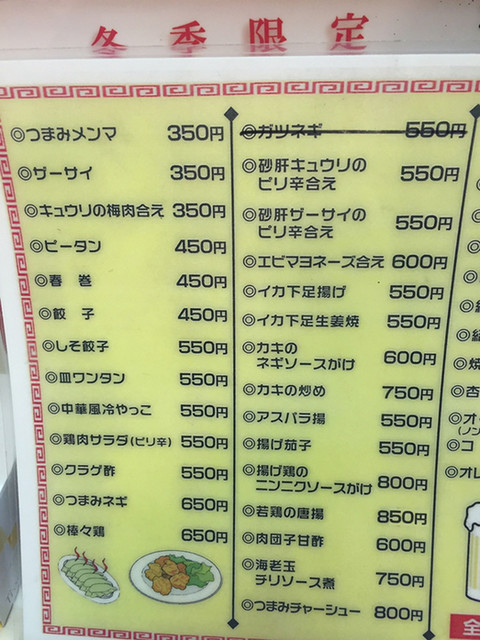 冬季限定
◎つまみメンマ 350円
◎ザーサイ 350円
◎キュウリの梅肉合え 350円
◎ピータン 450円
◎春 巻 450円
◎餃 子 450円
◎しそ餃子 550円
◎皿ワンタン 550円
◎中華風冷やっこ 550円
◎鶏肉サラダ(ピリ辛) 550円
◎クラゲ酢 550円
◎つまみネギ 650円
◎棒々鶏 650円
◎ガツネギ 550円
◎砂肝キュウリの
ピリ辛合え 550円
◎砂肝ザーサイの
ピリ辛合え 550円
◎エビマヨネーズ合え 600円
◎イカ下足揚げ 550円
◎イカ下足生姜焼 550円
◎カキの
ネギソースがけ 600円
◎カキの炒め 750円
◎アスパラ揚 550円
◎揚げ茄子 550円
◎揚げ鶏の
ニンニクソースがけ 800円
◎若鶏の唐揚 850円
◎肉団子甘酢 600円
◎海老玉
チリソース煮 750円
◎つまみチャーシュー 800円
◎杏
◎オ
(ノン
◎コ
◎オレ
全